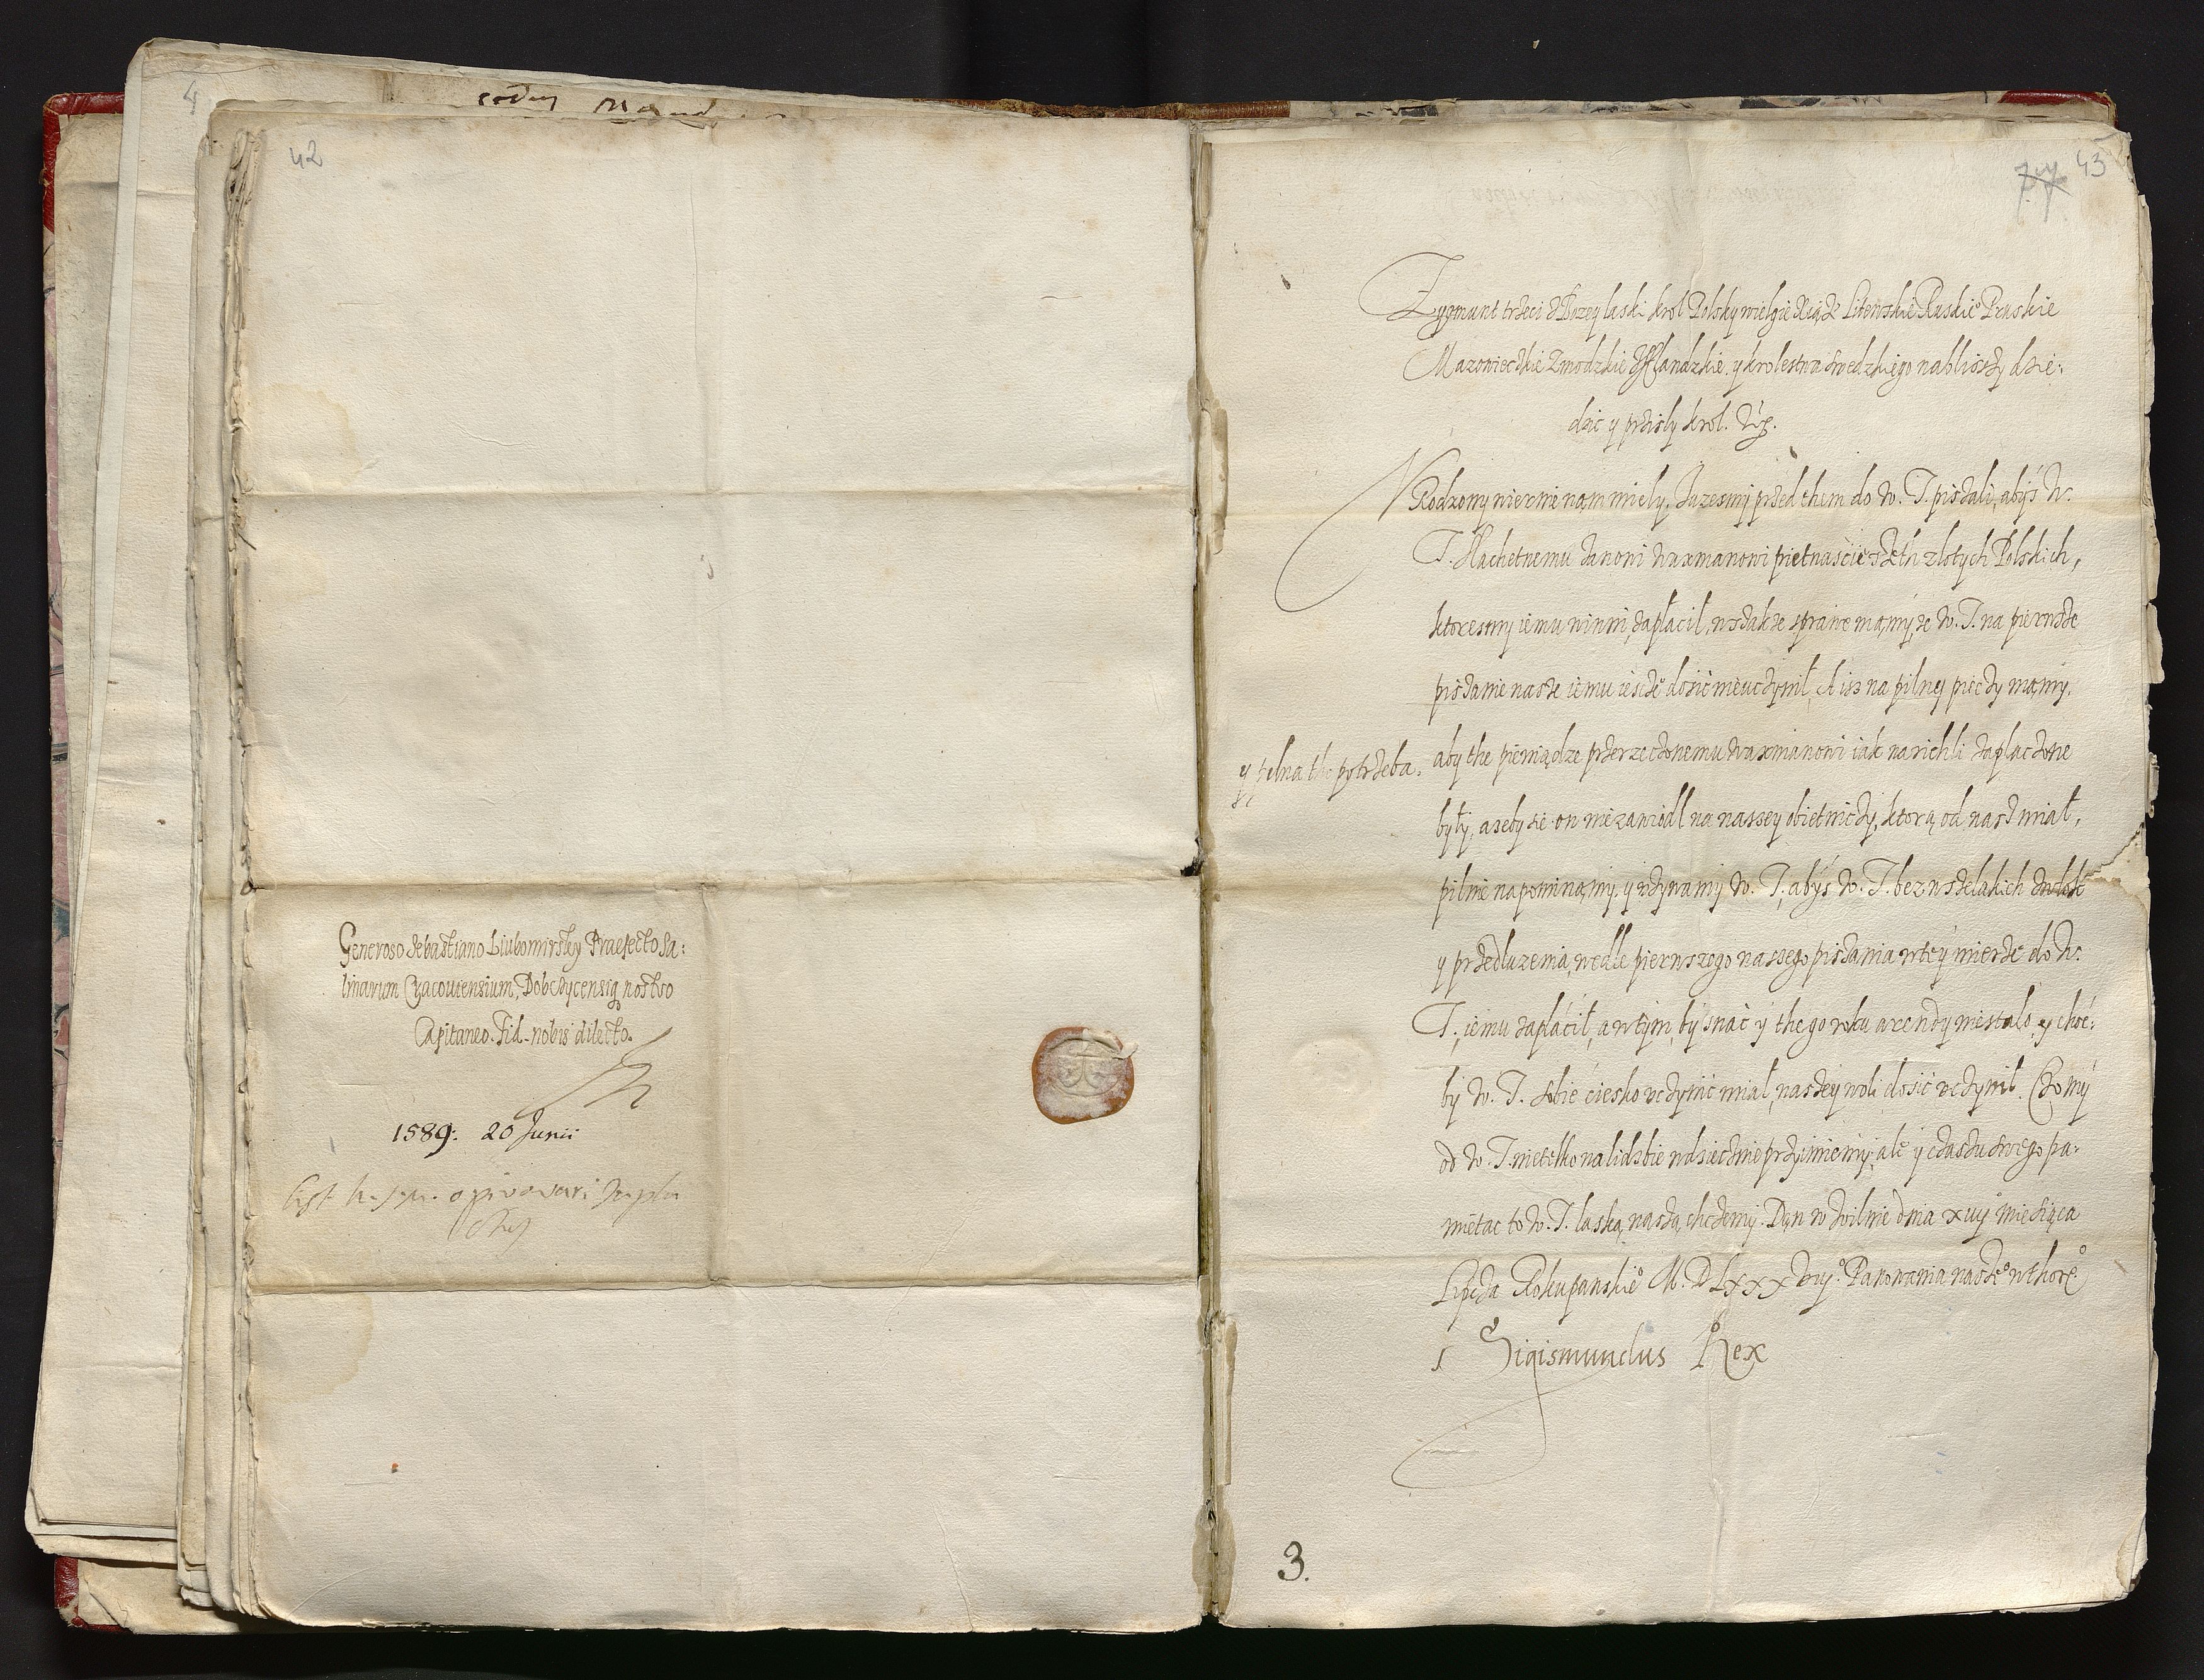 42
Generoso Sebastiano Liubomirsky Praefecto Sa:
linarum Cracouiensium, Dobczycensiq nostro
Capitaneo. Fid. nobis dilecto.
1589: 20 Junii
List
43
Zygmunt trzeci z Bozey laski krol Polsky wielgie Xiąze Litewskie Ruskie Pruskie
Mazowieczkie Zmodzkie Iflandzkie. y krolestwa swedzkiego nablisszy dzie:
dzic y przisly krol.
Vrodzony wiernie nam miely. Juzesmy przed them do W. T. piszali, abys W.
T. slachetnemu Janowi Waxmanowi pietnascie szeth zlotych Polskich,
ktoresmy iemu winni, zaplacil, wszakze sprawe mamy, ze W. T. na pierwsze
piszanie nasze iemu iescze dosic nieuczynil, A isz na pilney pieczy mamy,
y pelna tho potrzeba. aby the pieniądze przerzeczonemu Waxmanowi iak narichli zaplaczone
były, azeby sie on niezawiodl na nassey obietniczy, ktorą od nasz miał,
pilnie napominamy. y wzywamy W. T. abys W. T. bez wszelakich zwlok
y przedluzenia, wedle pierwszego nassego piszania wtey mierze do W.
T., iemu zaplacil, a wtym, by snac y thego roku arendy niestalo, y choc:
by W. T. sobie ciesko vczynic mial, naszey woli dosic vczynil. Czo my
od W. T. nietelko na lidzbie wdziecznie przyimiemy, ale y czaszu swego pa:
mietac to W. T. laską naszą chczemy. Dan w Wilnie dnia xvij miesiąca
Lipcza Roku panskie M. D Lxxx viiij. Panowania nasze wthore
Sigismundus Rex
3.